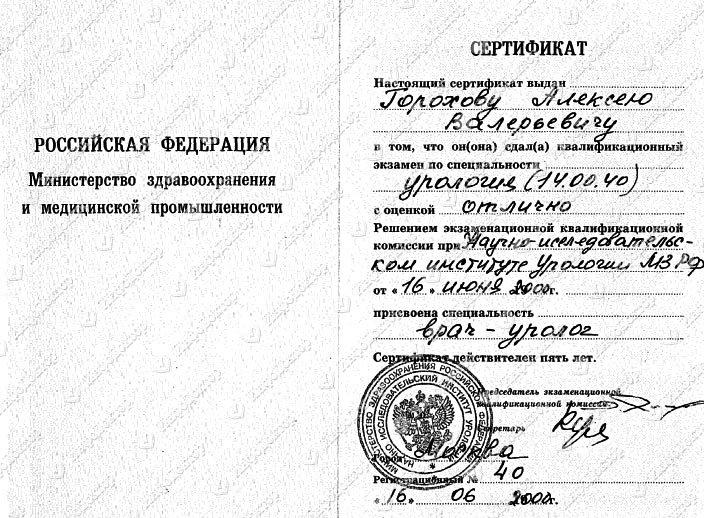 РОССИЙСКАЯ ФЕДЕРАЦИЯ
Министерство здравоохранения
и медицинской промышленности
СЕРТИФИКАТ
Настоящий сертификат выдан
Горохову Алексею
Валерьевичу
в том, что он(она) сдал(а) квалификационный
экзамен по специальности
урология (14.00.40)
с оценкой отлично
Решением экзаменационной квалификационной
комиссии при Научно-исследовательс-
ком институте Урологии МЗ РФ
от «16» июня г.
присвоена специальность
врач-уролог
Сертификат действителен пять лет.
Председатель экзаменационной
квалификационной комиссии
Секретарь
Город Москва
Регистрационный № 40
«16» 06 г.
МИНИСТЕРСТВО ЗДРАВООХРАНЕНИЯ РОССИЙСКОЙ ФЕДЕРАЦИИ
НАУЧНО ИССЛЕДОВАТЕЛЬСКИЙ ИНСТИТУТ УРОЛОГИИ